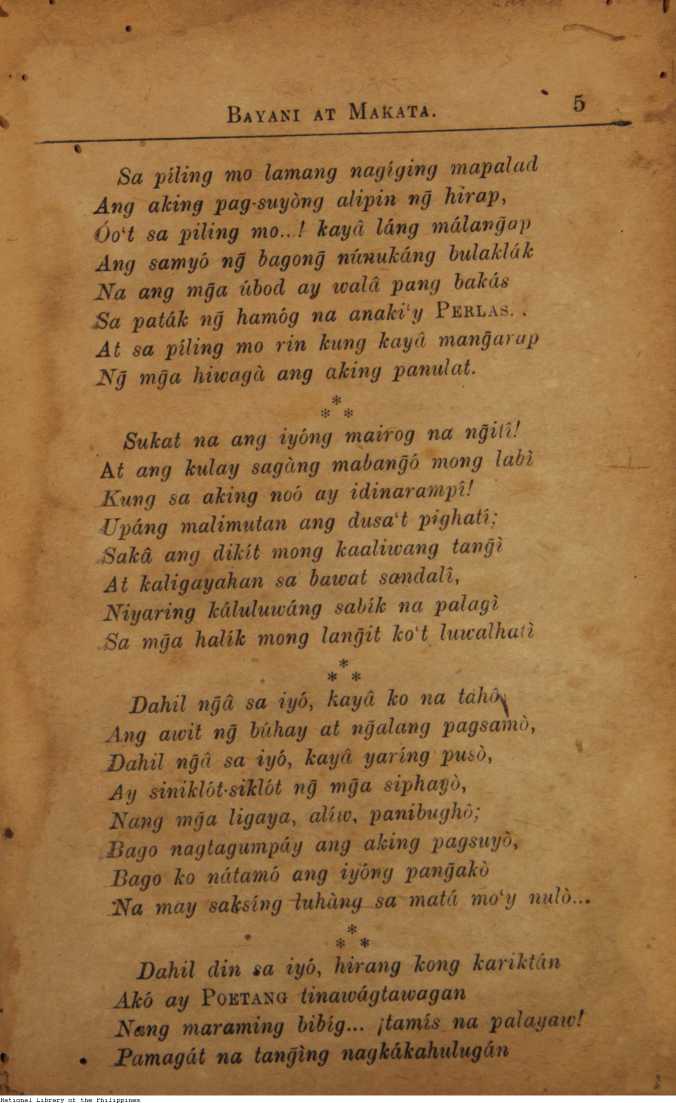 BAYANI AT MAKATA. 5
Sa píling mo lamang nagíging mapalad
Ang aking pag-suyòng alipin ng̃ hirap,
Óo‘t sa piling mo...! kayâ láng málang̃ap
Ang samyó ng̃ bagong̃ núnukáng bulaklák
Na ang mg̃a úbod ay walâ pang bakás
Sa paták ng̃ hamóg na anaki‘y PERLAS. .
At sa píling mo rin kung kayâ mang̃arap
Ng̃ mg̃a hiwagà ang aking panulat.
* * *
Sukat na ang iyóng mairog na ng̃itî!
At ang kulay sagàng mabang̃ó mong labì
Kung sa aking noó ay idinarampî!
Upáng malimutan ang dusa‘t pighatí;
Sakâ ang dikít mong kaaliwang tang̃ì
At kaligayahan sa bawat sandalî,
Niyaring káluluwáng sabík na palagì
Sa mg̃a halík mong lang̃it ko‘t luwalhatì
* * *
Dahil ng̃â sa iyó, kayâ ko na tahô
Ang awit ng̃ búhay at ng̃alang pagsamò,
Dahil ng̃â sa iyó, kayâ yaríng pusò,
Ay siniklót-siklót ng̃ mg̃a siphayò,
Nang mg̃a ligaya, alíw, panibughò;
Bago nagtagumpáy ang aking pagsuyò,
Bago ko nátamó ang iyóng pang̃akò
Na may saksíng luhàng sa matá mo‘y nulò...
* * *
Dahil din sa iyó, hirang kong kariktán
Akó ay POETANG tinawágtawagan
Nang maraming bibíg... ¡tamís na palayaw!
Pamagát na tang̃ìng nagkákahulugán
National Library of the Philippines